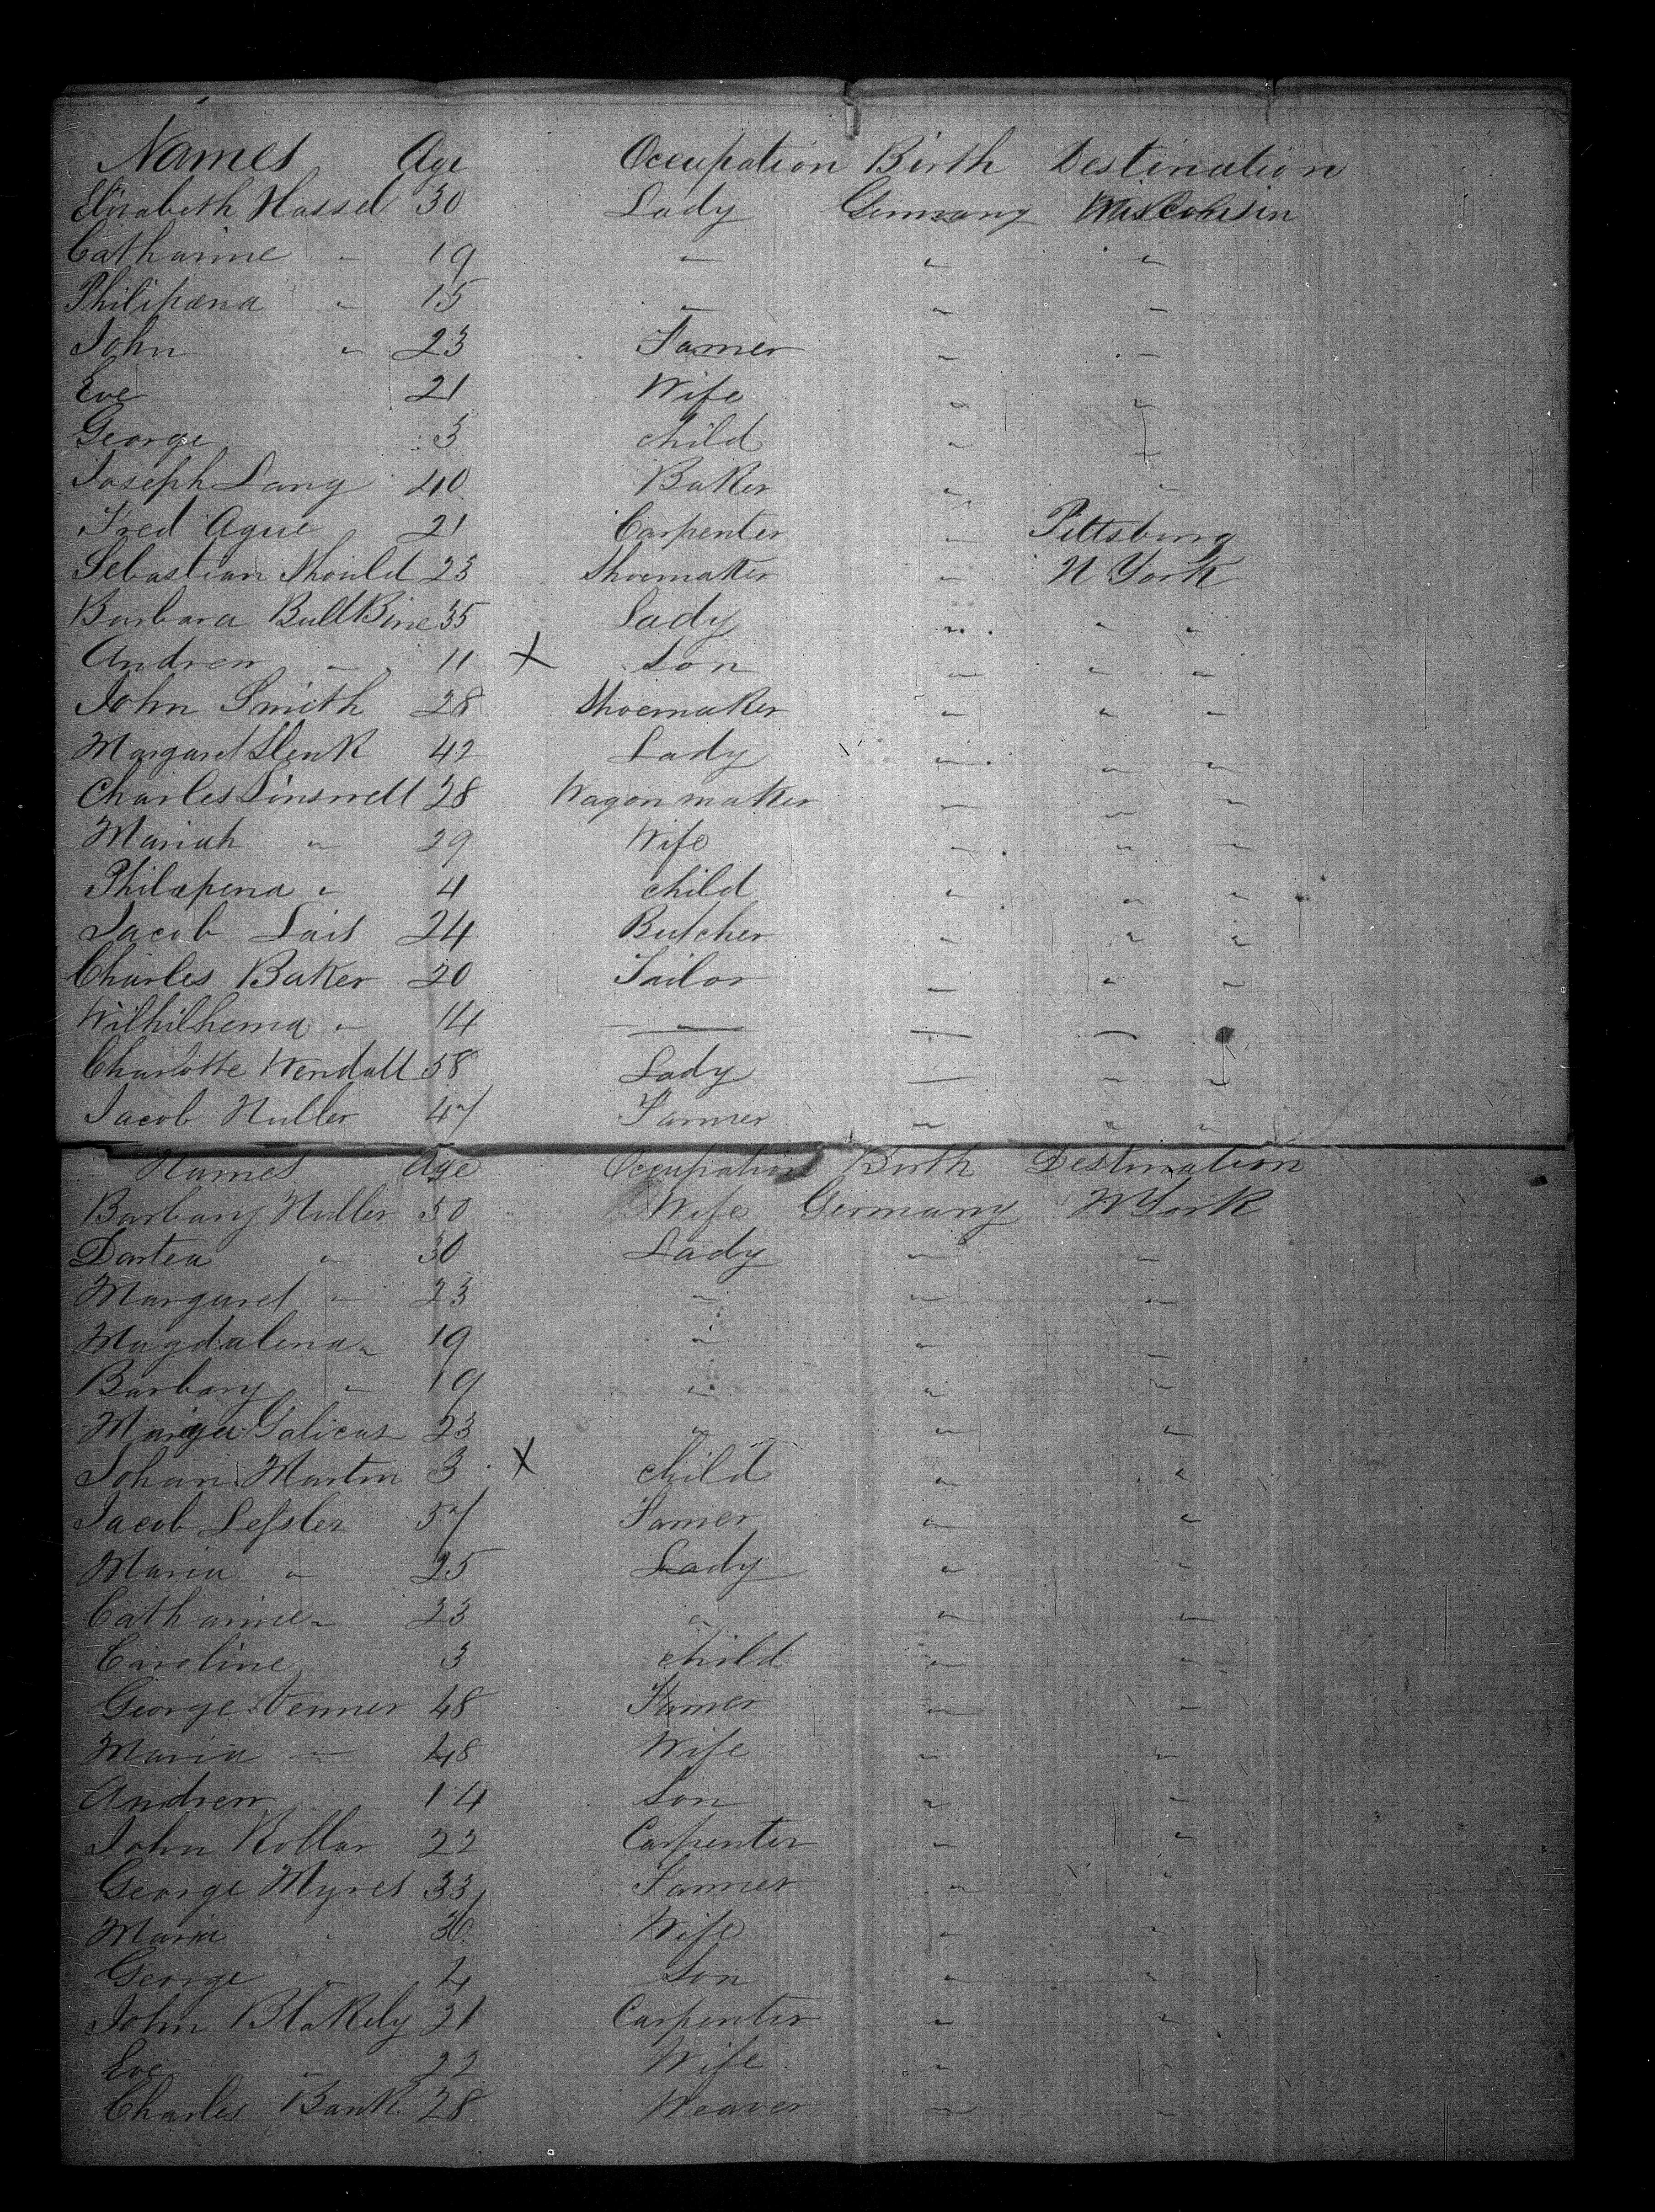 Names Age Occupation Birth Destination
Elizabeth Hassel 30 Lady Germany Wisconsin
Catharine " 19 " " "
Philipena " 15 " " "
John " 23 Famer " "
Eve 21 Wife " "
George 3 child " "
Joseph Lang 40 Baker " "
Fred Ague 21 Carpenter " Pittsburg
Sebastian Should 23 Shoemaker " N York
Barbara BullBine 35 Lady " " "
Andrew " 11 X Son " " "
John Smith 28 Shoemaker " " "
Margaret Slenk 42 Lady " " "
Charles Sinswell 28 Wagon maker " " "
Mariah " 29 Wife " " "
Philapena " 4 child " " "
Jacob Lais 24 Butcher " " "
Charles Baker 20 Tailor " " "
Wilhilhema " 14 " " " "
Charlotte Wendall 38 Lady " " "
Jacob Huller 47 Farmer " " "
Names Age Occupation Birth Destination
Barbary Huller 50 Wife Germany N York
Dortea " 30 Lady " "
Margaret " 23 " " "
Magdalena " 19 " " "
Barbary " 19 " " "
Galicas 23 " " "
Johan Martin 3 X child " "
Jacob Lessler 57 Famer " "
Maria " 25 Lady " "
Catharine " 23 " " "
Caroline 3 child " "
George Venner 48 Famer " "
Maria " 48 Wife " "
Andrew 14 Son " "
John Kollar 22 Carpenter " "
George Myres 33 Farmer " "
Maria " 30 Wife " "
George " 4 Son " "
John Blakely 21 Carpenter " "
Eve " 22 Wife " "
Charles Bank 28 Weaver " "